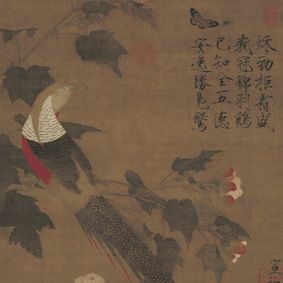 秋勁拒霜盛
峩冠錦羽鷄
已知全五德
安逸勝鳧鷖
宣